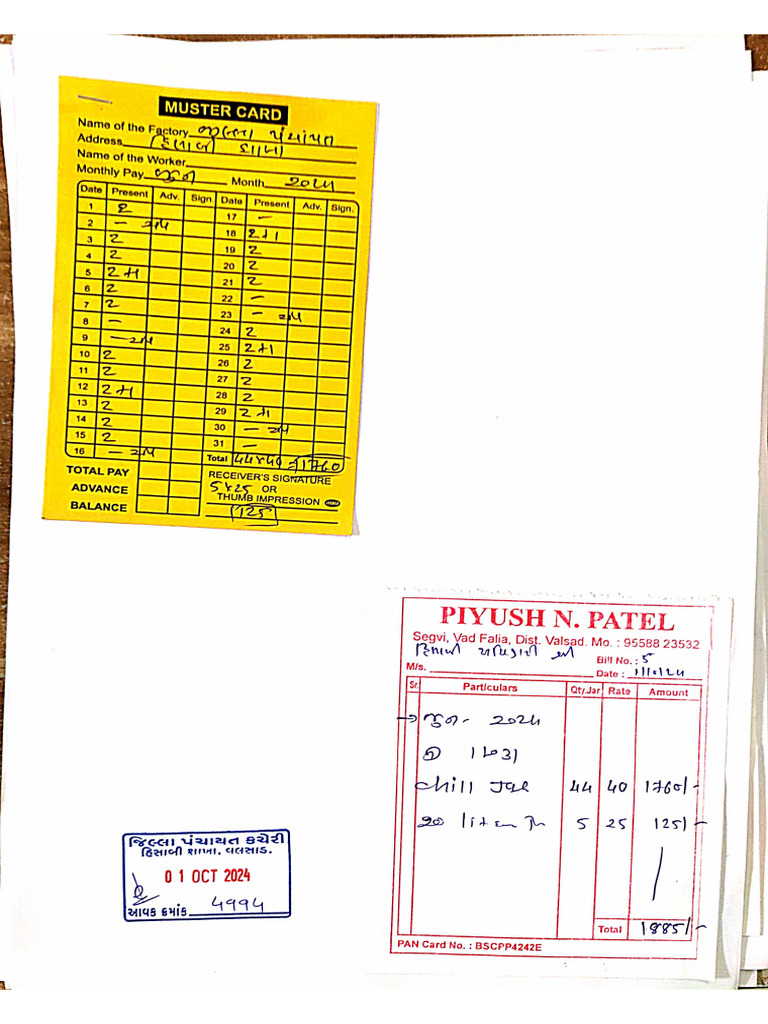 MUSTER CARD
Name of the Factory જીલ્લા પંચાયત
Address હિસાબી શાખા
Name of the Worker
Monthly Pay જુન Month ૨૦૨૪
Date Present Adv. Sign
1 2
2 —
3 2
4 2
5 2+1
6 2
7 2
8 —
9 —
10 2
11 2
12 2+1
13 2
14 2
15 2
16 —
TOTAL PAY
ADVANCE
BALANCE
Date Present Adv. Sign.
17 —
18 2+1
19 2
20 2
21 2
22 —
23 —
24 2
25 2+1
26 2
27 2
28 2
29 2+1
30 —
31 —
Total 44x40 = 1760
RECEIVER'S SIGNATURE
5x25 OR
THUMB IMPRESSION
125
PIYUSH N. PATEL
Segvi, Vad Falia, Dist. Valsad. Mo. : 95588 23532
હિસાબી અધિકારી શ્રી
Bill No. : 5
M/s. Date : 1/10/24
Sr. Particulars Qty.Jar Rate Amount
જુન - ૨૦૨૪
chill Jar 44 40 1760/-
20 liter 5 25 125/-
Total 1885/-
PAN Card No. : BSCPP4242E
જિલ્લા પંચાયત કચેરી
હિસાબી શાખા. વલસાડ.
01 OCT 2024
આવક ક્રમાંક ૪૧૧૪